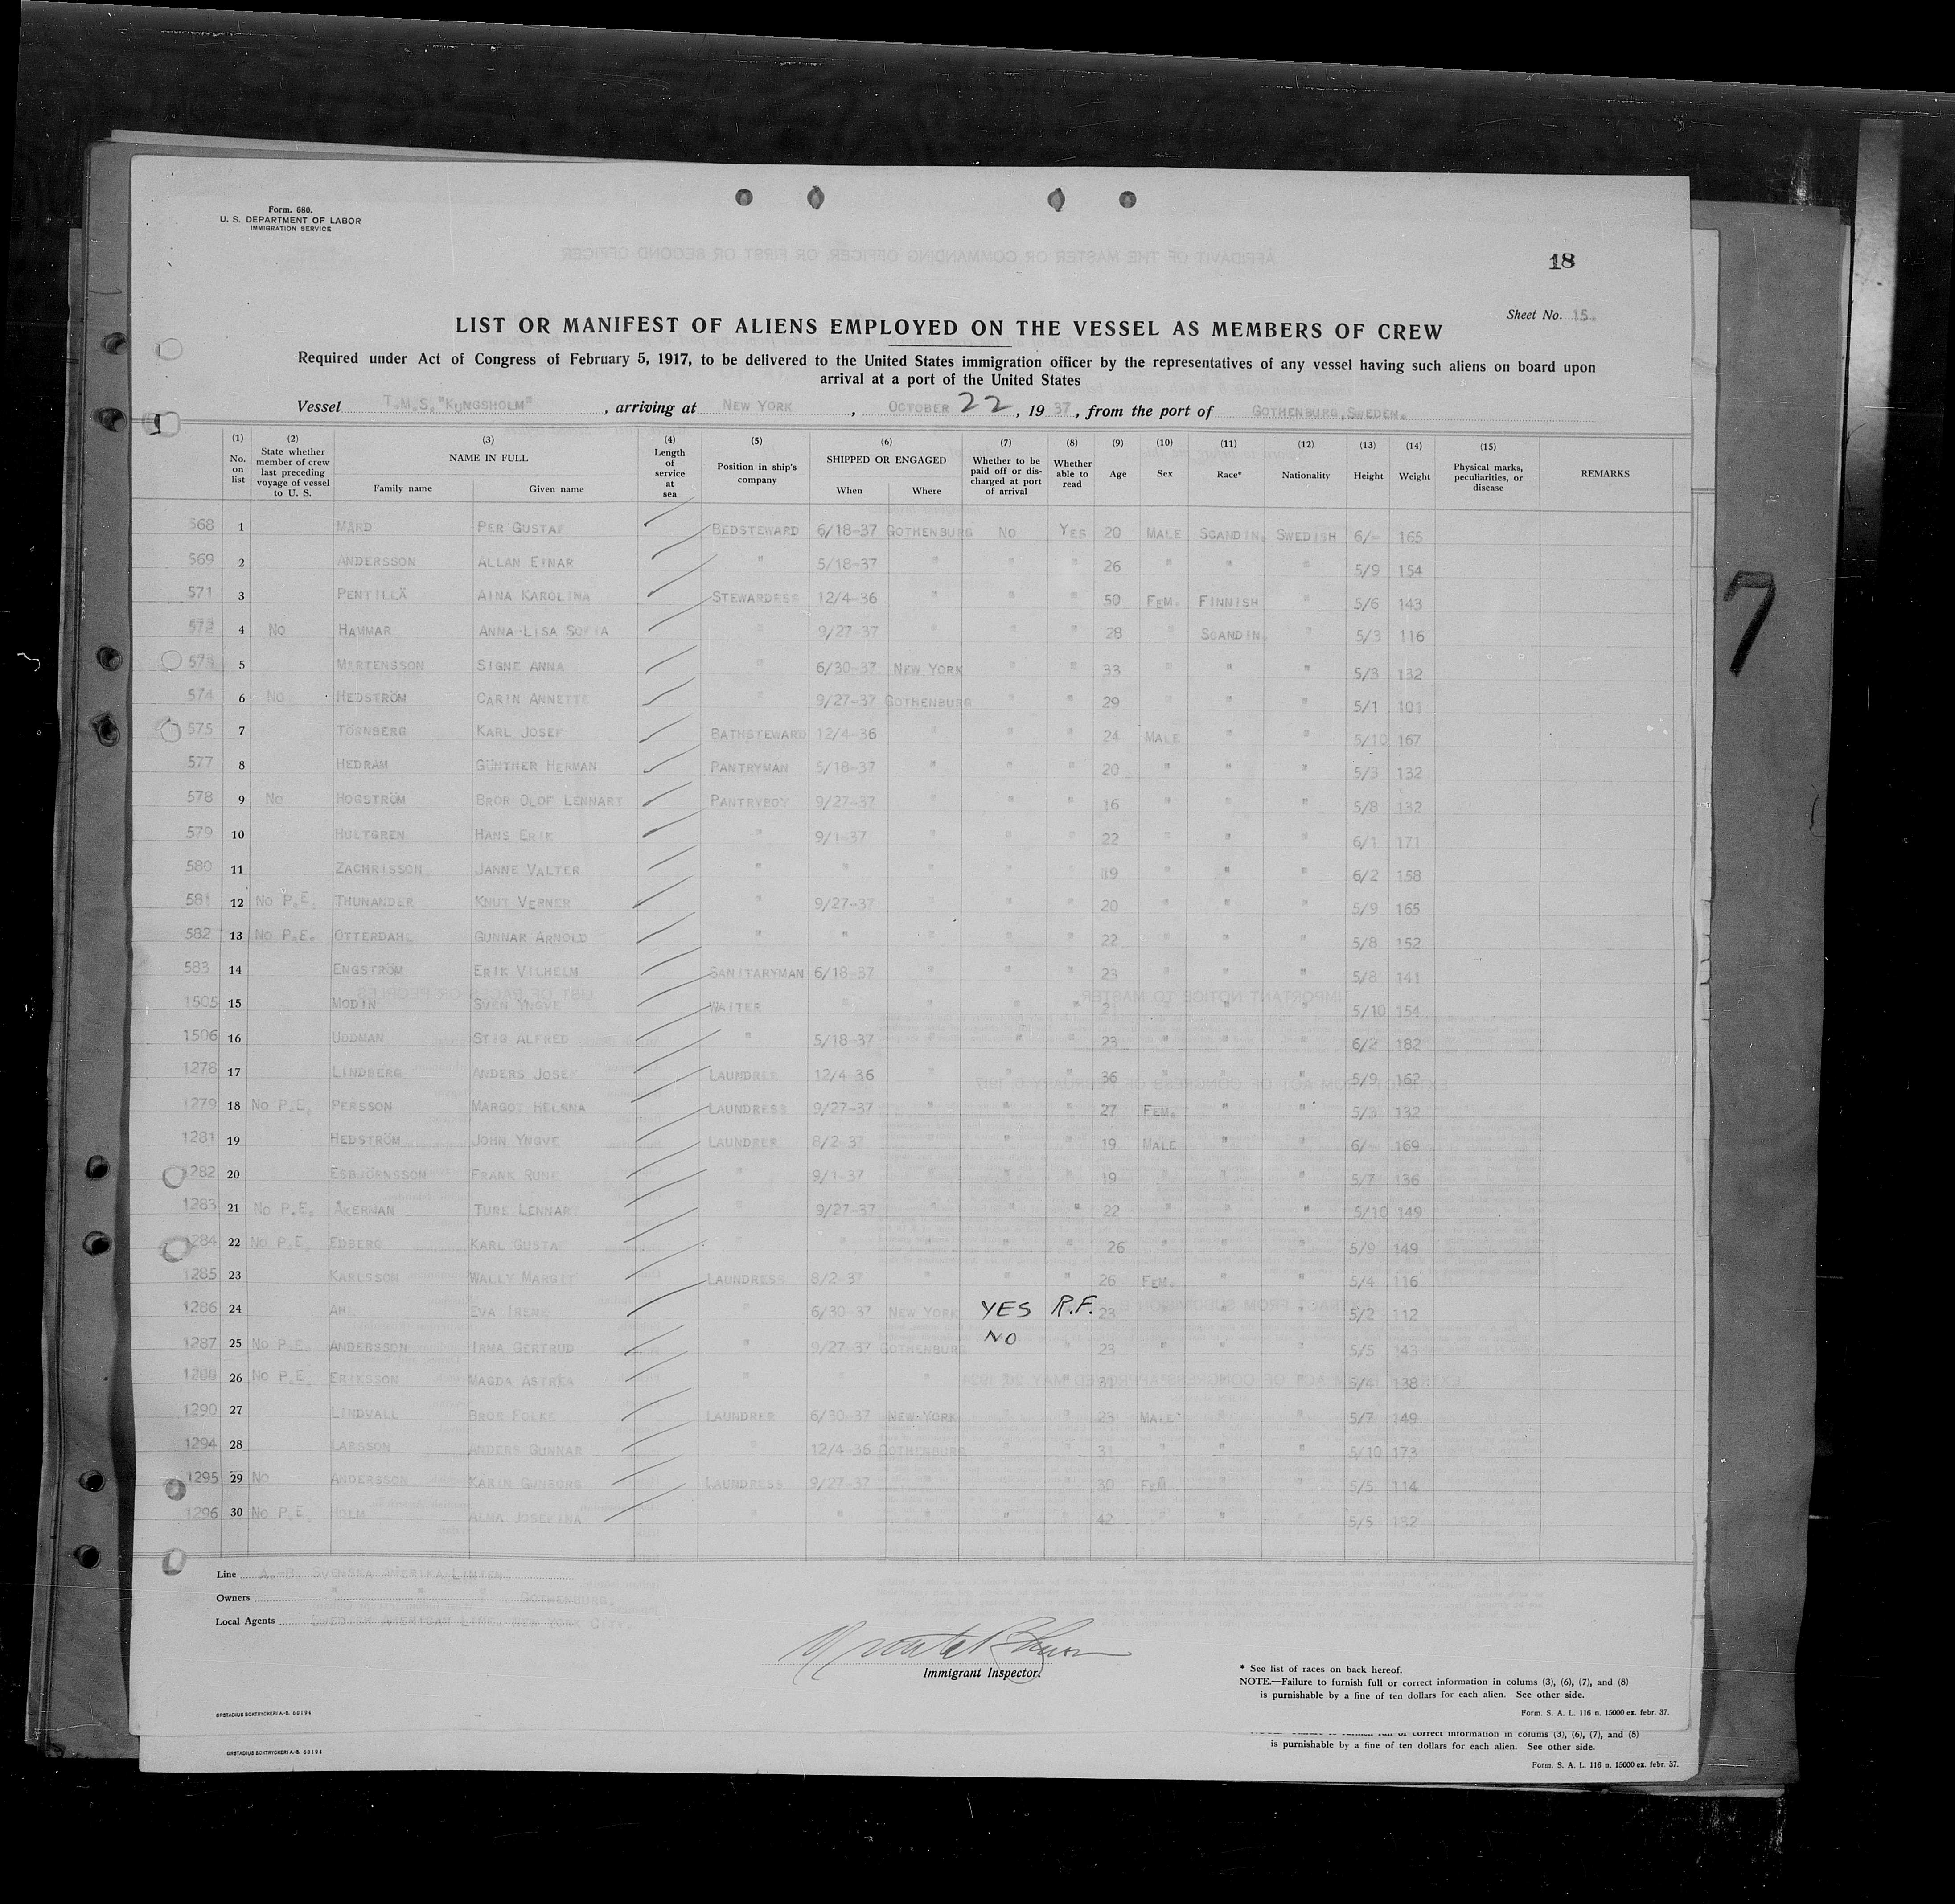 Form. 680.
U. S. DEPARTMENT OF LABOR
IMMIGRATION SERVICE
18
Sheet No. 15.
LIST OR MANIFEST OF ALIENS EMPLOYED ON THE VESSEL AS MEMBERS OF CREW
Required under Act of Congress of February 5, 1917, to be delivered to the United States immigration officer by the representatives of any vessel having such aliens on board upon
arrival at a port of the United States
Vessel T.M.S. "KUNGSHOLM", arriving at NEW YORK, OCTOBER 22, 1937, from the port of GOTHENBURG, SWEDEN.
(1) No. on list (2) State whether member of crew last preceding voyage of vessel to U. S. (3) NAME IN FULL Family name Given name (4) Length of service at sea (5) Position in ship's company (6) SHIPPED OR ENGAGED When Where (7) Whether to be paid off or discharged at port of arrival (8) Whether able to read (9) Age (10) Sex (11) Race* (12) Nationality (13) Height (14) Weight (15) Physical marks, peculiarities, or disease REMARKS
568 1 MÅRD PER GUSTAF BEDSTEWARD 6/18-37 GOTHENBURG NO YES 20 MALE SCANDIN. SWEDISH 6/- 165
569 2 ANDERSSON ALLAN EINAR " 5/18-37 " " " 26 " " " 5/9 154
571 3 PENTILLÄ AINA KAROLINA STEWARDESS 12/4-36 " " " 50 FEM. FINNISH " 5/6 143
572 4 NO HAMMAR ANNA-LISA SOFIA " 9/27-37 " " " 28 " SCANDIN. " 5/3 116
573 5 MÅRTENSSON SIGNE ANNA " 6/30-37 NEW YORK " " 33 " " " 5/3 132
574 6 NO HEDSTRÖM CARIN ANNETTE " 9/27-37 GOTHENBURG " " 29 " " " 5/1 101
575 7 TÖRNBERG KARL JOSEF BATHSTEWARD 12/4-36 " " " 24 MALE " " 5/10 167
577 8 HEDRAM GÜNTHER HERMAN PANTRYMAN 5/18-37 " " " 20 " " " 5/3 132
578 9 NO HÖGSTRÖM BROR OLOF LENNART PANTRYBOY 9/27-37 " " " 16 " " " 5/8 132
579 10 HULTGREN HANS ERIK " 9/1-37 " " " 22 " " " 6/1 171
580 11 ZACHRISSON JANNE VALTER " " " " " 19 " " " 6/2 158
581 12 NO P.E. THUNANDER KNUT VERNER " 9/27-37 " " " 20 " " " 5/9 165
582 13 NO P.E. OTTERDAHL GUNNAR ARNOLD " " " " " 22 " " " 5/8 152
583 14 ENGSTRÖM ERIK VILHELM SANITARYMAN 6/18-37 " " " 23 " " " 5/8 141
1505 15 MODIN SVEN YNGVE WAITER " " " " 21 " " " 5/10 154
1506 16 UDDMAN STIG ALFRED " 5/18-37 " " " 23 " " " 6/2 182
1278 17 LINDBERG ANDERS JOSEF LAUNDRER 12/4-36 " " " 36 " " " 5/9 162
1279 18 NO P.E. PERSSON MARGOT HELENA LAUNDRESS 9/27-37 " " " 27 FEM. " " 5/3 132
1281 19 HEDSTRÖM JOHN YNGVE LAUNDRER 8/2-37 " " " 19 MALE " " 6/- 169
1282 20 ESBJÖRNSSON FRANK RUNE " 9/1-37 " " " 19 " " " 5/7 136
1283 21 NO P.E. ÅKERMAN TURE LENNART " 9/27-37 " " " 22 " " " 5/10 149
1284 22 NO P.E. EDBERG KARL GUSTAF " " " " " 26 " " " 5/9 149
1285 23 KARLSSON WALLY MARGIT LAUNDRESS 8/2-37 " " " 26 FEM. " " 5/4 116
1286 24 AH EVA IRENE " 6/30-37 NEW YORK YES R.F. 23 " " " 5/2 112
1287 25 NO P.E. ANDERSSON IRMA GERTRUD " 9/27-37 GOTHENBURG NO " 23 " " " 5/5 143
26 NO P.E. ERIKSSON MAGDA ASTREA " " " " " " " " 5/4 138
1290 27 LINDVALL BROR FOLKE LAUNDRER 6/30-37 NEW YORK " " 23 MALE " " 5/7 149
1294 28 LARSSON ANDERS GUNNAR " 12/4-36 GOTHENBURG " " 31 " " " 5/10 173
1295 29 NO ANDERSSON KARIN GUNBORG LAUNDRESS 9/27-37 " " " 30 FEM. " " 5/5 114
1296 30 NO P.E. HOLM ALMA JOSEFINA " " " " " 42 " " " 5/5 132
7
Line A.-B. SVENSKA AMERIKA LINIEN,
Owners " " " GOTHENBURG.
Local Agents SWEDISH AMERICAN LINE, NEW YORK CITY.
Immigrant Inspector.
* See list of races on back hereof.
NOTE.—Failure to furnish full or correct information in colums (3), (6), (7), and (8)
is punishable by a fine of ten dollars for each alien. See other side.
ORSTADIUS BOKTRYCKERI A.-B. 60194
Form. S. A. L. 116 n. 15000 ex. febr. 37.
correct information in colums (3), (6), (7), and (8)
is punishable by a fine of ten dollars for each alien. See other side.
ORSTADIUS BOKTRYCKERI A.-B. 60194
Form. S. A. L. 116 n. 15000 ex. febr. 37.